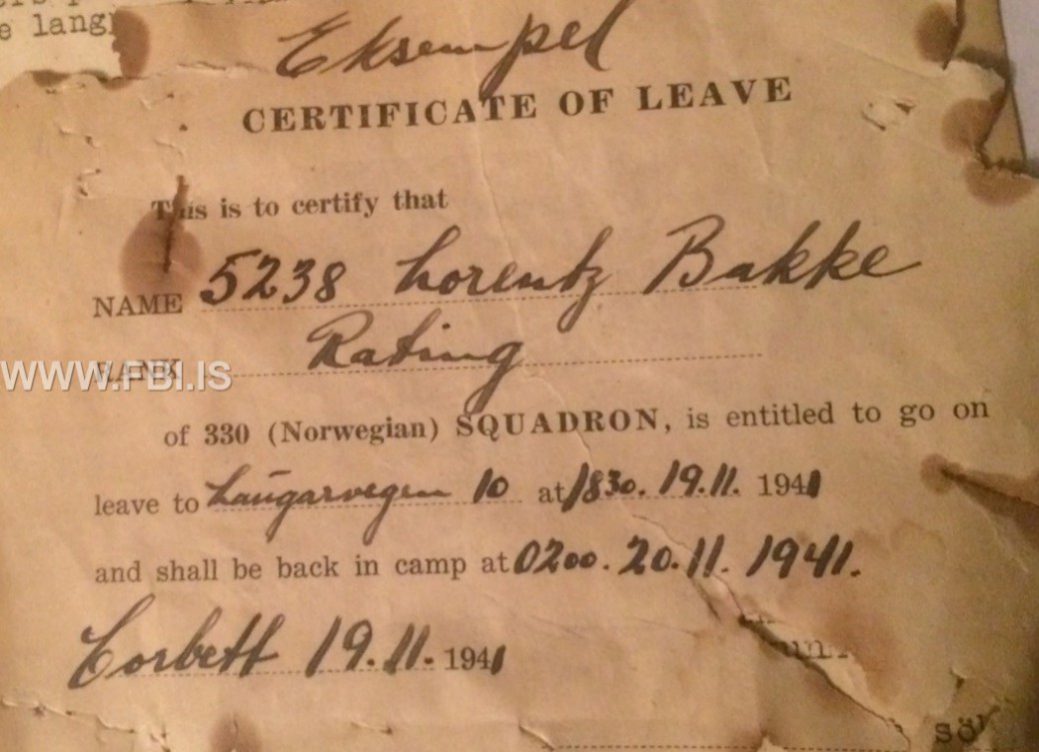 e lang
Eksempel
CERTIFICATE OF LEAVE
This is to certify that
NAME 5238 Lorentz Bakke
RANK Rating
WWW.FBI.IS
of 330 (Norwegian) SQUADRON, is entitled to go on
leave to Laugarvegen 10 at 1830. 19.11. 1941
and shall be back in camp at 0200. 20.11. 1941.
Corbett 19.11. 1941